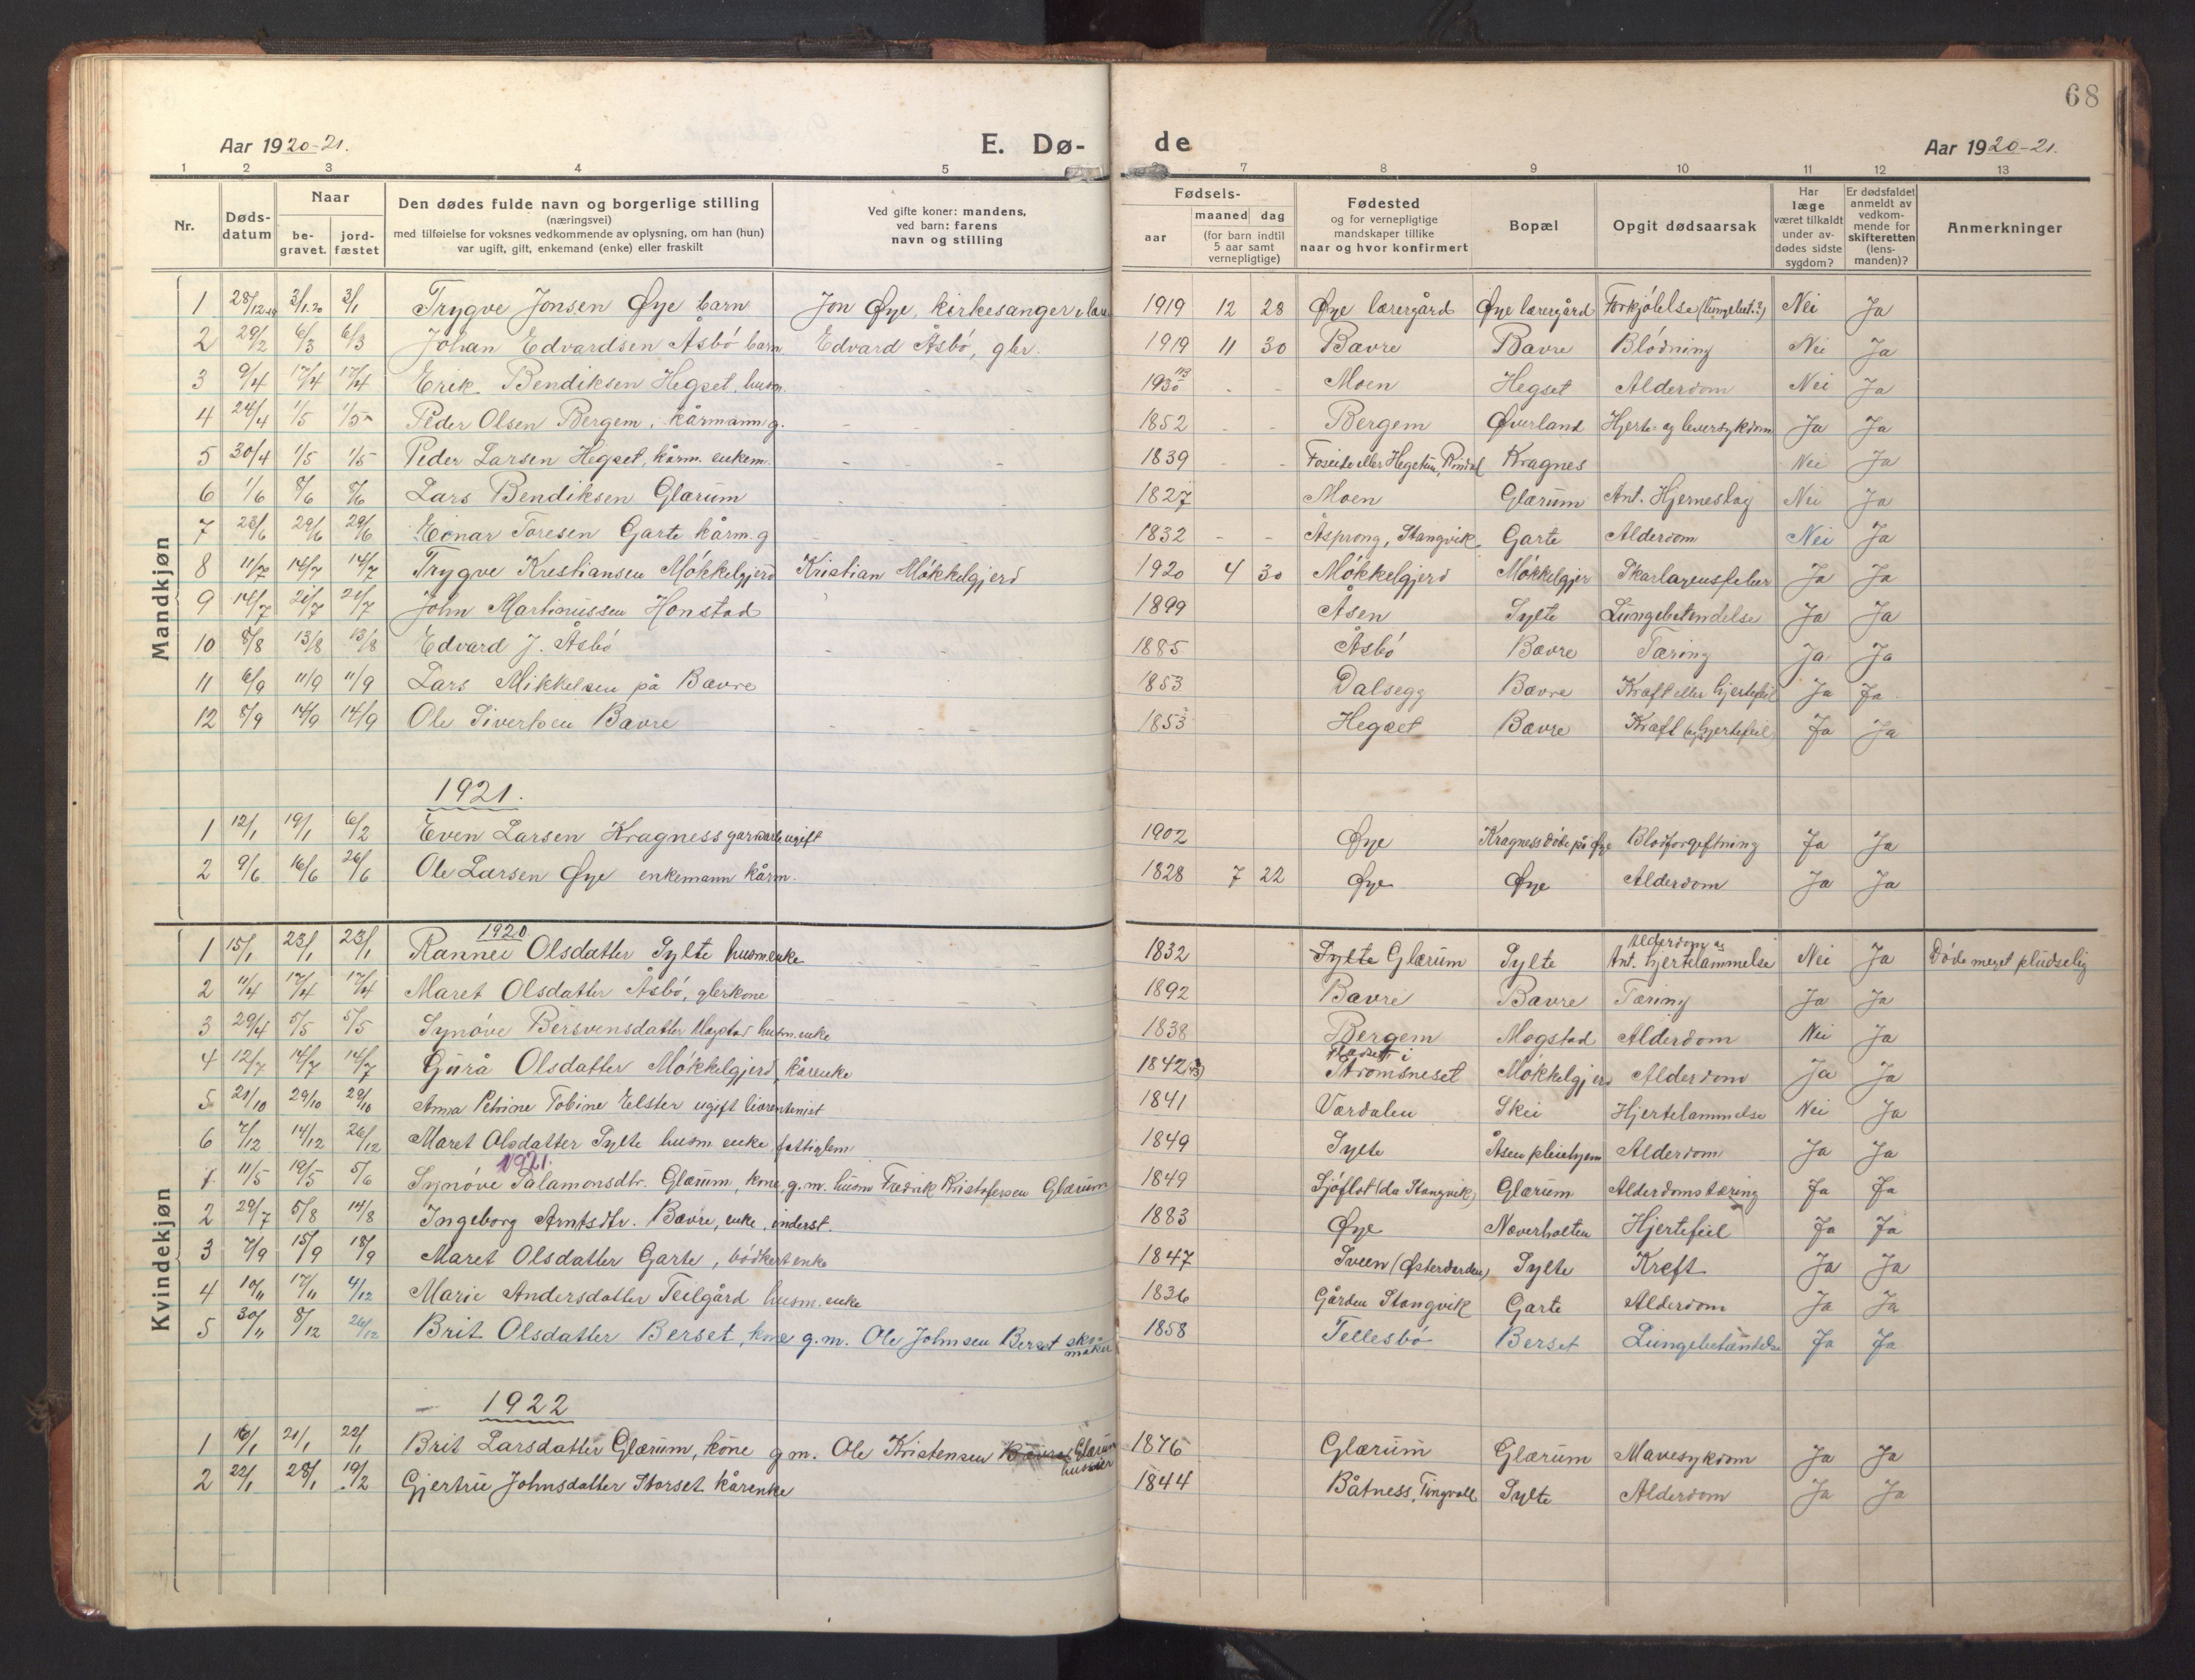 68
Aar 1920-21. E. Dø- de Aar 1920-21.
1 2 3 4 5 6 7 8 9 10 11 12 13
Nr. Døds-datum Naar be-gravet. jord-fæstet Den dødes fulde navn og borgerlige stilling (næringsvei) med tilføielse for voksnes vedkommende av oplysning, om han (hun) var ugift, gift, enkemand (enke) eller fraskilt Ved gifte koner: mandens, ved barn: farens navn og stilling Fødsels- aar maaned dag (for barn indtil 5 aar samt vernepligtige) Fødested og for vernepligtige mandskaper tillike naar og hvor konfirmert Bopæl Opgit dødsaarsak Har læge været tilkaldt under av-dødes sidste sygdom? Er dødsfaldet anmeldt av vedkom-mende for skifteretten (lens-manden)? Anmerkninger
Mandkjøn
1 28/12-19 3/1.20 3/1 Trygve Jonsen Øye barn Jon Øye, kirkesanger 1919 12 28 Øye lærergård Øye lærergård Forkjølelse (lungebet.?) Nei Ja
2 29/2 6/3 6/3 Johan Edvardsen Åsbó barn Edvard Åsbó, gbr. 1919 11 30 Bævre Bævre Blódning Nei Ja
3 9/4 17/4 17/4 Erik Bendiksen Hegset, husm. - - - - - Moen Hegset Alderdom Nei Ja
4 24/4 1/5 1/5 Peder Olsen Bergem, kårmann g. - - - 1852 - - Bergem Øverland Hjerte- og leversykdom Ja Ja
5 30/4 1/5 1/5 Peder Larsen Hegset, kårm. enkem. - - - 1839 - - Rindal Kragnes Nei Ja
6 1/6 8/6 8/6 Lars Bendiksen Glærum - - - 1827 Moen Glærum Ant. Hjerneslag Nei Ja
7 23/6 29/6 29/6 Einar Toresen Garte kårm. g - - - 1832 - - Åsprong, Stangvik Garte Alderdom Nei Ja
8 11/7 14/7 14/7 Trygve Kristiansen Mókkelgjerd Kristian Mókkelgjerd 1920 4 30 Mókkelgjerd Mókkelgjer Skarlagensfeber Ja Ja
9 14/7 21/7 21/7 John Martinussen Honstad 1899 Åsen Sylte Lungebetendelse Ja Ja
10 8/8 13/8 13/8 Edvard J. Åsbó - - - 1885 Åsbó Bævre Tæring Ja Ja
11 6/9 11/9 11/9 Lars Mikkelsen på Bævre 1853 Dalsegg Bævre Kræft eller hjertefeil Ja Ja
12 8/9 14/9 14/9 Ole Sivertsen Bævre - - - 1853 Hegset Bævre Kræft (og hjertefeil) Ja Ja
1921.
1 12/1 19/1 6/2 Even Larsen Kragness ugift 1902 Øye Kragness døde på Øye Blodforgiftning Ja Ja
2 9/6 16/6 26/6 Ole Larsen Øye enkemann kårm. 1828 7 22 Øye Øye Alderdom Ja Ja
Kvindekjøn
1920
1 15/1 23/1 23/1 Rannei Olsdatter Sylte husm.enke - - - 1832 Sylte Glærum Sylte Alderdom og Ant. hjertelammelse Nei Ja Døde meget pludselig
2 11/4 17/4 17/4 Maret Olsdatter Åsbó, gbrkone - - - 1892 Bævre Bævre Tæring Ja Ja
3 29/4 5/5 5/5 Synóve Bersvensdatter Mogstad husm.enke 1838 Bergem Mogstad Alderdom Nei Ja
4 12/7 14/7 14/7 Gurå Olsdatter Mókkelgjerd, kårenke 1842 Stromsneset Mókkelgjerd Alderdom Ja Ja
5 21/10 29/10 29/10 Anna Petrine Tobine Elster ugift livrentenist 1841 Værdalen Skei Hjertelammelse Nei Ja
6 7/12 14/12 26/12 Maret Olsdatter Sylte husm. enke fattiglem 1849 Sylte Åsen pleiehjem Alderdom Ja Ja
1921.
1 11/5 19/5 5/6 Synóve Salamonsdtr. Glærum, kone g.m. husm Fredrik Kristofersen Glærum 1849 Sjóflot (da Stangvik) Glærum Alderdomstæring Ja Ja
2 29/7 5/8 14/8 Ingeborg Arntsdtr. Bævre, enke, inderst. 1883 Øye Næverholten Hjertefeil Ja Ja
3 7/9 15/9 18/9 Maret Olsdatter Garte, bódkerenke 1847 Sveen (Østerdalen) Sylte Kreft Ja Ja
4 10/11 17/11 4/12 Marie Andersdatter Teilgård husm. enke 1836 Gården Stangvik Garte Alderdom Ja Ja
5 30/11 8/12 26/12 Brit Olsdatter Berset, kone g.m. Ole Johnsen Berset skomaker 1858 Tellesbó Berset Lungebetændelse Ja Ja
1922
1 16/1 21/1 22/1 Brit Larsdatter Glærum, kone g.m. Ole Kristensen Bævre Glærum husmer 1876 Glærum Glærum Mavesykdom Ja Ja
2 22/1 28/1 19/2 Gjertru Johnsdatter Storset kårenke 1844 Båtness, Tingvoll Sylte Alderdom Ja Ja